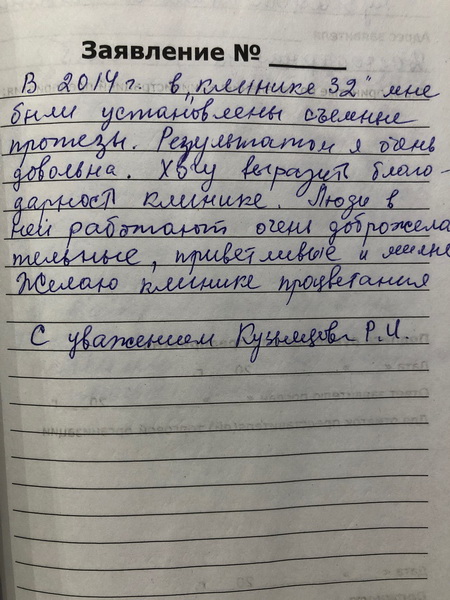 Заявление № ______
В 2014 г. в „клинике 32" мне
были установлены съемные
протезы. Результатом я очень
довольна. Хочу выразить благо-
дарность клинике. Люди в
ней работают очень доброжела
тельные, приветливые и милые
Желаю клинике процветания
С уважением Кузнецова Р.И.